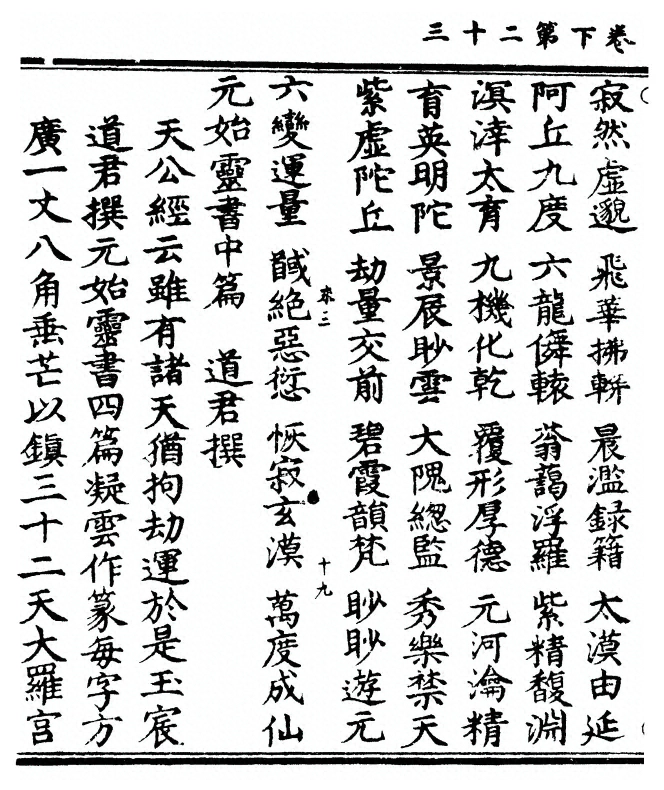 卷下第二十三
寂然虛邈　飛華拂軿　晨濫録籍　太漠由延
阿丘九度　六龍僢轅　蓊藹浮羅　紫精馥淵
溟涬太育　九機化乾　覆形厚德　元河瀹精
育英明陀　景辰眇雲　大隗緫監　秀樂禁天
紫虛陀丘　劫量交前　碧霞韻梵　眇眇遊元
六變運量　馘絶惡愆　恢寂玄漠　萬度成仙
三
十九
元始靈書中篇　道君撰
天公經云雖有諸天猶拘劫運於是玉宸
道君撰元始靈書四篇凝雲作篆每字方
廣一丈八角垂芒以鎮三十二天大羅宫